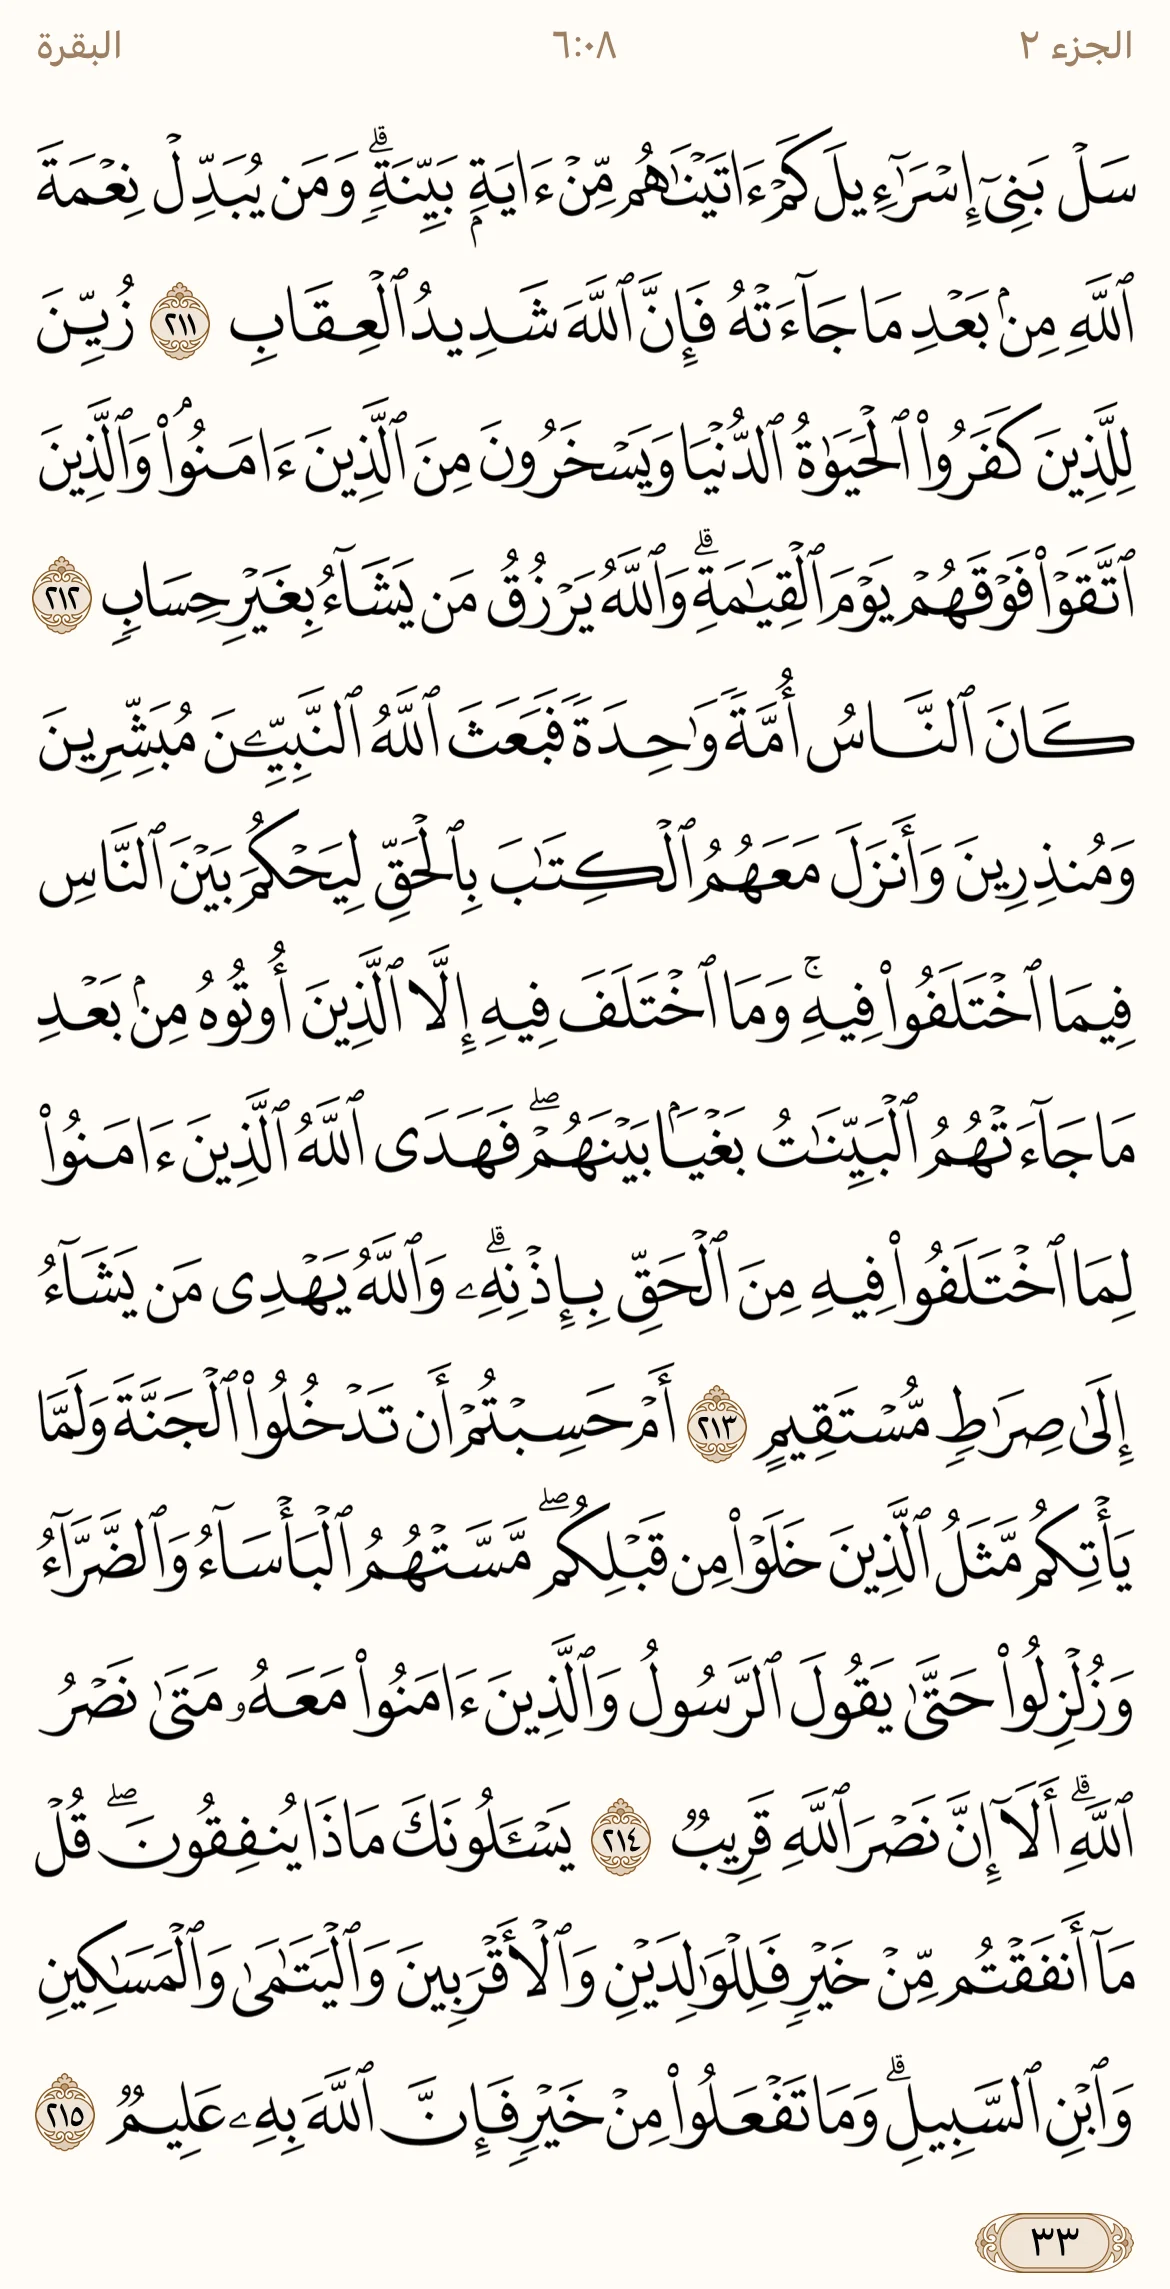 الجزء ٢ ٦:٠٨ البقرة
سَلْ بَنِىٓ إِسْرَٰٓءِيلَ كَمْ ءَاتَيْنَٰهُم مِّنْ ءَايَةٍۭ بَيِّنَةٍۗ وَمَن يُبَدِّلْ نِعْمَةَ
ٱللَّهِ مِنۢ بَعْدِ مَا جَآءَتْهُ فَإِنَّ ٱللَّهَ شَدِيدُ ٱلْعِقَابِ ٢١١ زُيِّنَ
لِلَّذِينَ كَفَرُوا۟ ٱلْحَيَوٰةُ ٱلدُّنْيَا وَيَسْخَرُونَ مِنَ ٱلَّذِينَ ءَامَنُوا۟ۘ وَٱلَّذِينَ
ٱتَّقَوْا۟ فَوْقَهُمْ يَوْمَ ٱلْقِيَٰمَةِۗ وَٱللَّهُ يَرْزُقُ مَن يَشَآءُ بِغَيْرِ حِسَابٍ ٢١٢
كَانَ ٱلنَّاسُ أُمَّةً وَٰحِدَةً فَبَعَثَ ٱللَّهُ ٱلنَّبِيِّـۧنَ مُبَشِّرِينَ
وَمُنذِرِينَ وَأَنزَلَ مَعَهُمُ ٱلْكِتَٰبَ بِٱلْحَقِّ لِيَحْكُمَ بَيْنَ ٱلنَّاسِ
فِيمَا ٱخْتَلَفُوا۟ فِيهِۚ وَمَا ٱخْتَلَفَ فِيهِ إِلَّا ٱلَّذِينَ أُوتُوهُ مِنۢ بَعْدِ
مَا جَآءَتْهُمُ ٱلْبَيِّنَٰتُ بَغْيًۢا بَيْنَهُمْۖ فَهَدَى ٱللَّهُ ٱلَّذِينَ ءَامَنُوا۟
لِمَا ٱخْتَلَفُوا۟ فِيهِ مِنَ ٱلْحَقِّ بِإِذْنِهِۦۗ وَٱللَّهُ يَهْدِى مَن يَشَآءُ
إِلَىٰ صِرَٰطٍ مُّسْتَقِيمٍ ٢١٣ أَمْ حَسِبْتُمْ أَن تَدْخُلُوا۟ ٱلْجَنَّةَ وَلَمَّا
يَأْتِكُم مَّثَلُ ٱلَّذِينَ خَلَوْا۟ مِن قَبْلِكُمۖ مَّسَّتْهُمُ ٱلْبَأْسَآءُ وَٱلضَّرَّآءُ
وَزُلْزِلُوا۟ حَتَّىٰ يَقُولَ ٱلرَّسُولُ وَٱلَّذِينَ ءَامَنُوا۟ مَعَهُۥ مَتَىٰ نَصْرُ
ٱللَّهِۗ أَلَآ إِنَّ نَصْرَ ٱللَّهِ قَرِيبٌ ٢١٤ يَسْـَٔلُونَكَ مَاذَا يُنفِقُونَۖ قُلْ
مَآ أَنفَقْتُم مِّنْ خَيْرٍ فَلِلْوَٰلِدَيْنِ وَٱلْأَقْرَبِينَ وَٱلْيَتَٰمَىٰ وَٱلْمَسَٰكِينِ
وَٱبْنِ ٱلسَّبِيلِۗ وَمَا تَفْعَلُوا۟ مِنْ خَيْرٍ فَإِنَّ ٱللَّهَ بِهِۦ عَلِيمٌ ٢١٥
٣٣